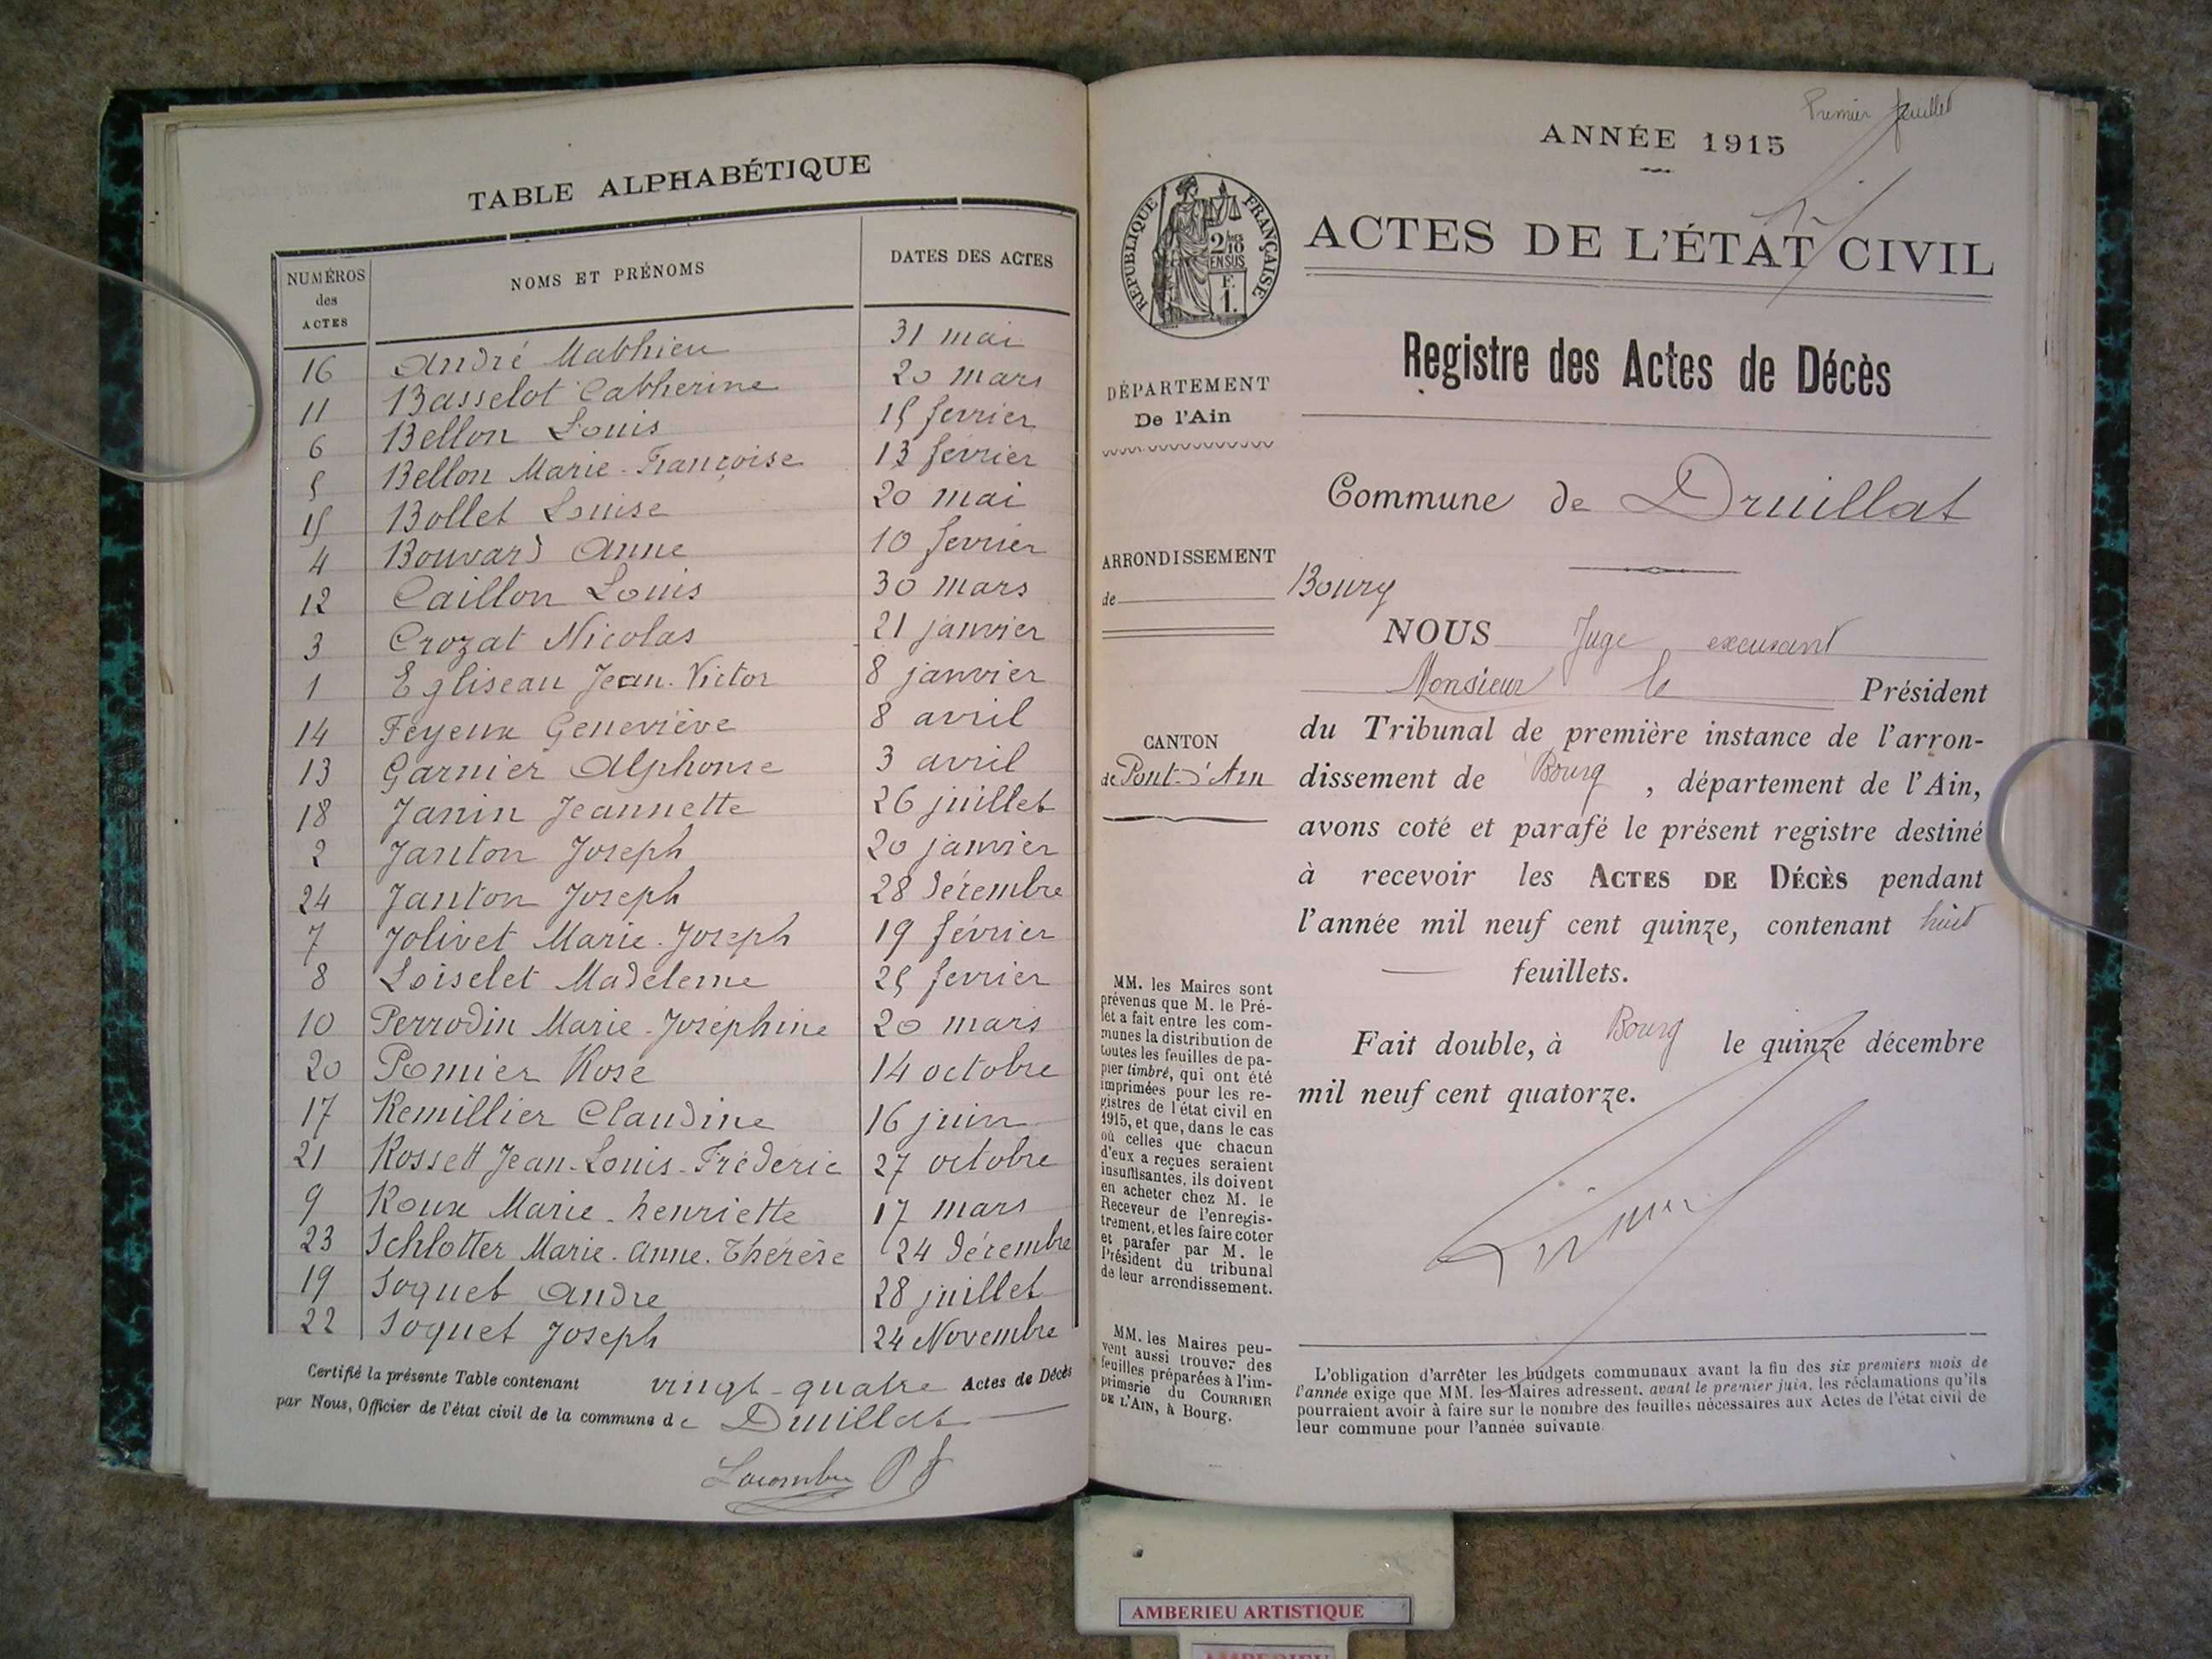 TABLE ALPHABÉTIQUE
NUMÉROS des ACTES NOMS ET PRÉNOMS DATES DES ACTES
16 André Mathieu 31 mai
11 Basselot Catherine 20 mars
6 Bellon Louis 15 février
5 Bellon Marie-Françoise 13 février
15 Bollet Louise 20 mai
4 Bouvard Anne 10 février
12 Caillon Louis 30 mars
3 Crozat Nicolas 21 janvier
1 Egliseau Jean-Victor 8 janvier
14 Feyeux Geneviève 8 avril
13 Garnier Alphonse 3 avril
18 Janin Jeannette 26 juillet
2 Janton Joseph 20 janvier
24 Janton Joseph 28 décembre
7 Jolivet Marie-Joseph 19 février
8 Loiselet Madeleine 25 février
10 Perrodin Marie-Joséphine 20 mars
20 Pomier Rose 14 octobre
17 Remillier Claudine 16 juin
21 Rossett Jean-Louis-Frédéric 27 octobre
9 Roux Marie-henriette 17 mars
23 Schlotter Marie-Anne-Thérèse 24 décembre
19 Soquet André 28 juillet
22 Soquet Joseph 24 Novembre
Certifié la présente Table contenant vingt-quatre Actes de Décès
par Nous, Officier de l'état civil de la commune de Druillat
Premier feuillet
ANNÉE 1915
RÉPUBLIQUE FRANÇAISE
2/10
EN SUS
F.
1.
ACTES DE L'ÉTAT CIVIL
Registre des Actes de Décès
DÉPARTEMENT
De l'Ain
Commune de Druillat
ARRONDISSEMENT
de Bourg
NOUS Juge excusant
Monsieur le Président
du Tribunal de première instance de l'arron-
CANTON
de Pont-d'Ain
dissement de Bourg, département de l'Ain,
avons coté et parafé le présent registre destiné
à recevoir les ACTES DE DÉCÈS pendant
l'année mil neuf cent quinze, contenant huit
feuillets.
Fait double, à Bourg le quinze décembre
mil neuf cent quatorze.
MM. les Maires sont
prévenus que M. le Pré-
fet a fait entre les com-
munes la distribution de
toutes les feuilles de pa-
pier timbré, qui ont été
imprimées pour les re-
gistres de l'état civil en
1915, et que, dans le cas
où celles que chacun
d'eux a reçues seraient
insuffisantes, ils doivent
en acheter chez M. le
Receveur de l'enregis-
trement, et les faire coter
et parafer par M. le
Président du tribunal
de leur arrondissement.
MM. les Maires peu-
vent aussi trouver des
feuilles préparées à l'im-
primerie du COURRIER
DE L'AIN, à Bourg.
L'obligation d'arrêter les budgets communaux avant la fin des six premiers mois de
l'année exige que MM. les Maires adressent, avant le premier juin, les réclamations qu'ils
pourraient avoir à faire sur le nombre des feuilles nécessaires aux Actes de l'état civil de
leur commune pour l'année suivante.
AMBERIEU ARTISTIQUE
AMBERIEU